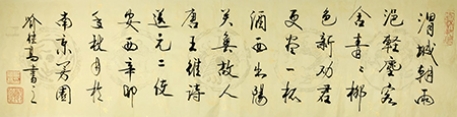 渭城朝雨
浥輕塵客
舍青々柳
色新劝君
更尽一杯
酒西出陽
关無故人
唐王維詩
送元二使
安西辛卯
秋月於
南京
書之